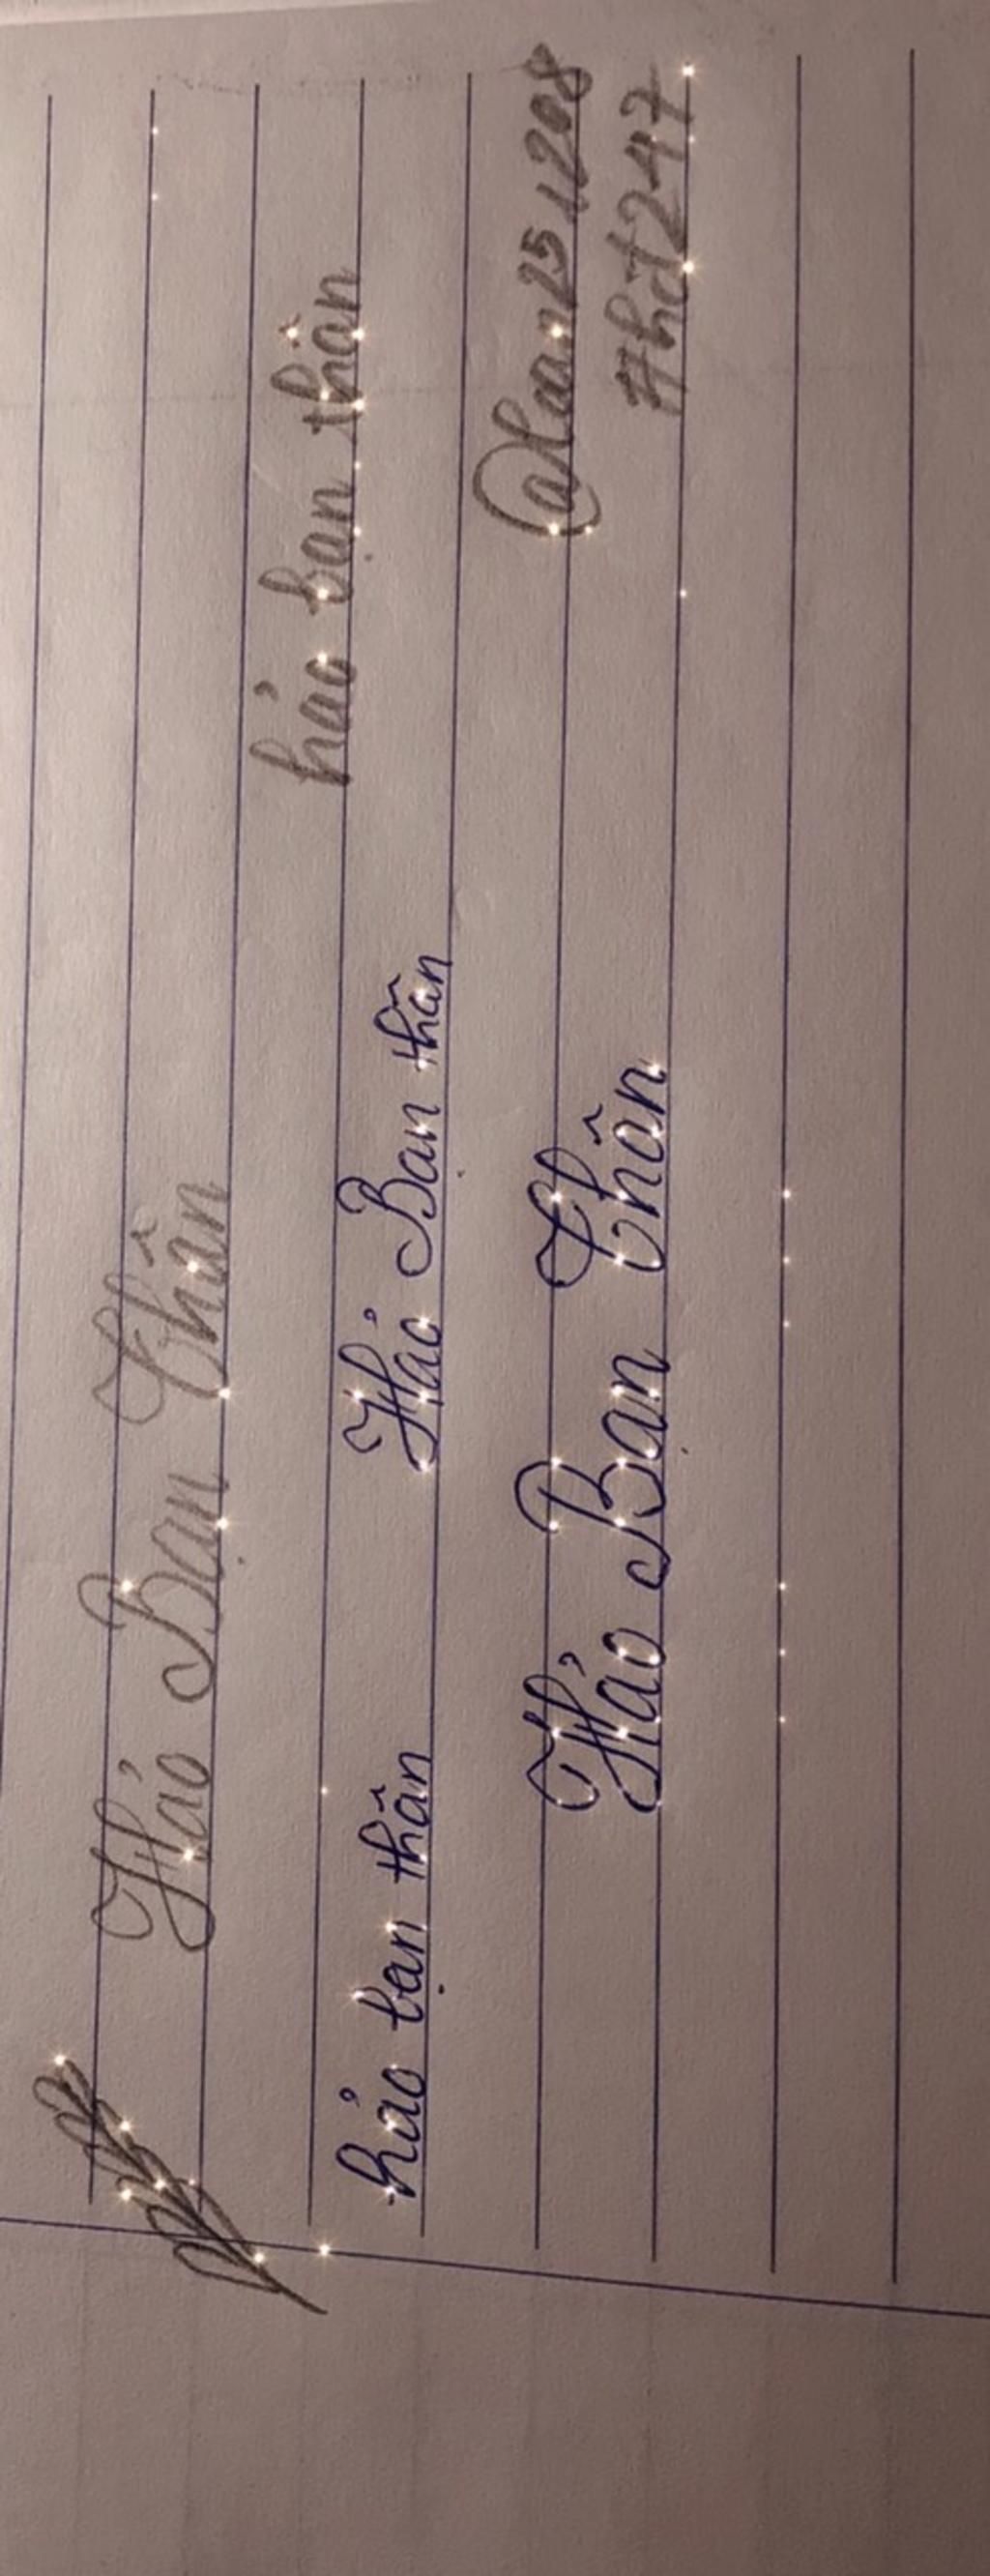 Hảo Bạn Thân
hảo bạn thân
hảo bạn thân Hảo Bạn thân
Hảo Bạn Thân
#hdt247